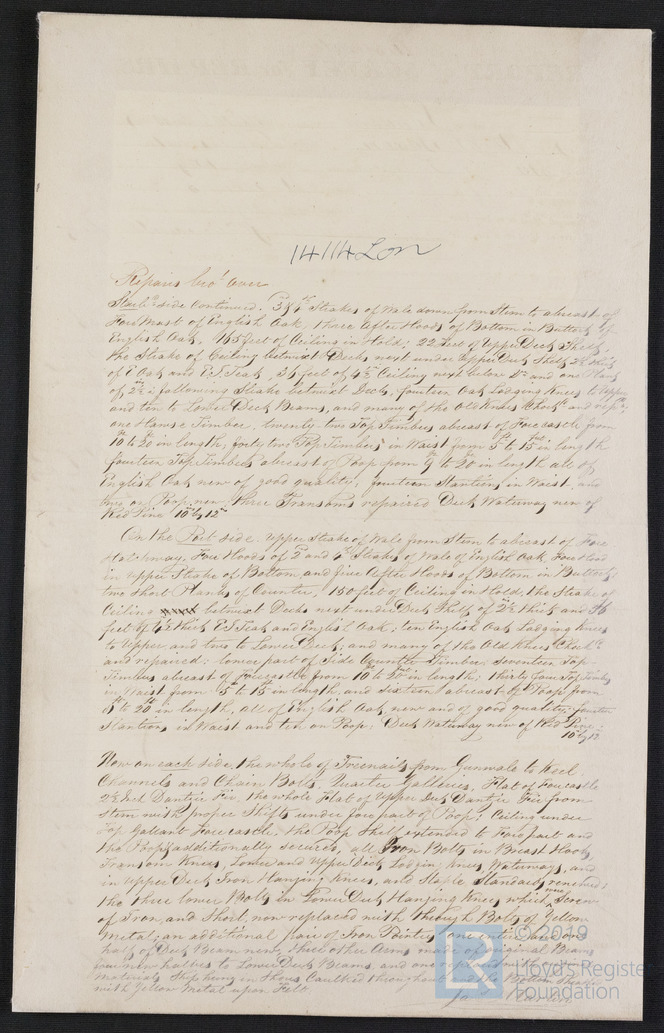 14114 Lon
Repairs bro.t Over
Starb.d side Continued. 3 & 4th Strakes of Wale down from Stem to abreast of
Fore Mast of English Oak, three After Hoods of Bottom in Buttock of
English Oak, 165 feet of Ceiling in Hold; 22 feet of Upper Deck Shelf,
the Strake of Ceiling betwixt Decks next under Upper Deck Shelf 2½ thick
of E Oak and E.I. Teak, 36 feet of 4½ Ceiling next below D.o and one Plank
of 2½ in following Strake betwixt Decks, fourteen Oak Lodging Knees to Upper
and ten to Lower Deck Beams, and many of the Old Knees Chock.d and rep.d;
one Hawse Timber, twenty-two Top Timbers abreast of Forecastle from
10 to 20 in length, forty two Top Timbers in Waist from 5 to 15 in length
fourteen Top Timbers abreast of Poop from 9 to 20 in length all of
English Oak new of good quality; fourteen Stantions in Waist, and
two on Poop, new, three Transoms repaired Deck Waterway new of
Red Pine 10 by 12
On the Port side. Upper Strake of Wale from Stem to abreast of Fore
Hatchway, Fore Hoods of 2 and 4th Strakes of Wale of English Oak, Fore Hood
in upper Strake of Bottom, and five After Hoods of Bottom in Buttock,
two Short Planks of Counter, 150 feet of Ceiling in Hold, the Strake of
Ceiling betwixt Decks next under Deck Shelf of 2½ thick and 36
feet of 4½ thick E.I. Teak and English Oak; ten English Oak Lodging Knees
to Upper, and two to Lower Deck; and many of the Old Knees Chock.d
and repaired; lower part of Side Counter Timber; seventeen Top
Timbers abreast of Forecastle from 10 to 20 in length; thirty four Top Timbers
in Waist from 5 to 15 in length, and sixteen abreast of Poop from
8 to 20 in length, all of English Oak, new and of good quality; fourteen
Stantions in Waist and ten on Poop; Deck Waterway new of Red Pine
10 by 12
Now on each side, the whole of Treenails from Gunwale to Keel
Channels and Chain Bolts, Quarter Galleries, Flat of Forecastle
2½ Inch Dantzic Fir, the whole Flat of Upper Deck Dantzic Fir from
Stem with proper Shifts under fore part of Poop; Ceiling under
Top Gallant Forecastle, the Poop Shelf extended to Fore part and
the Poop additionally secured, all Iron Bolts in Breast Hooks,
Transom Knees, Lower and Upper Deck Lodging Knees, Waterways, and
in upper Deck Iron Hanging Knees, and Staple Standards renewed;
the three lower Bolts in Lower Deck Hanging Knees which were Screw
of Iron, and Short, now replaced with through Bolts of Yellow
Metal; an additional pair of Iron Pointers
half of Deck Beam new, three other Arms made of original Beam
four new halves to Lower Deck Beams, and one
materials Shipping in Shoes Caulked throughout
with Yellow Metal upon Felt
© 2019
Lloyd's Register
Foundation
LR